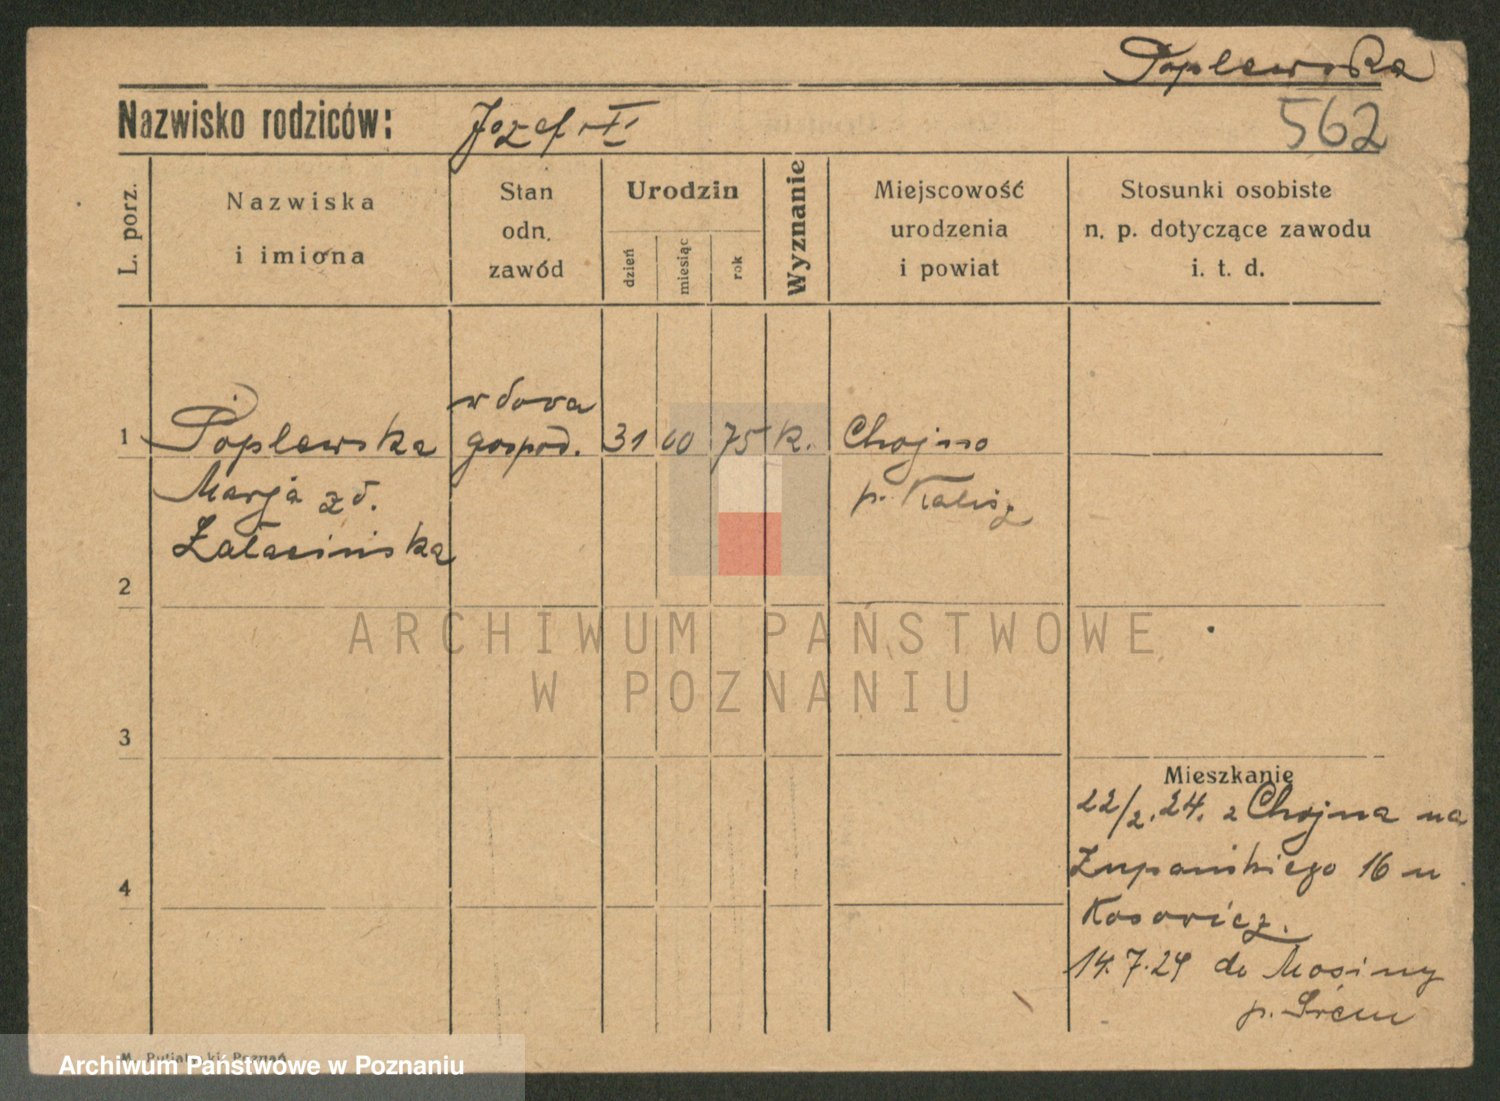 Poplewska
Nazwisko rodziców: Józef
562
L. porz.
Nazwiska
i imiona
Stan
odn.
zawód
Urodzin
dzień
miesiąc
rok
Wyznanie
Miejscowość
urodzenia
i powiat
Stosunki osobiste
n. p. dotyczące zawodu
i. t. d.
1
Poplewska
Marja zd.
wdova
gospod.
31
75
k.
Chojno
p. Kalisz
2
3
4
ARCHIWUM PAŃSTWOWE
W POZNANIU
Mieszkanie
22/2.24. z Chojna na
Żupańskiego 16 u
Kosovicz.
14.7.24 do Mosiny
p. Śrem
Archiwum Państwowe w Poznaniu